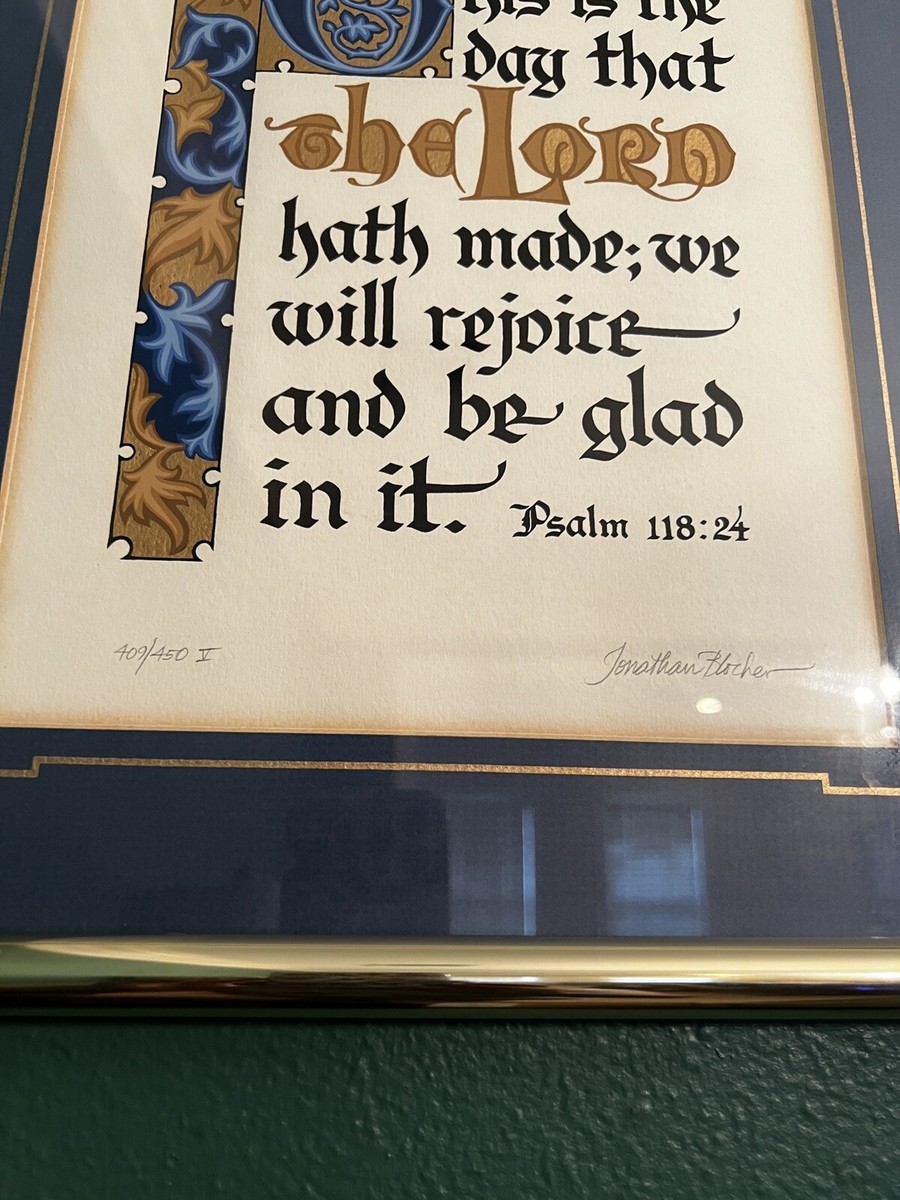 his is the
day that
the LORD
hath made; we
will rejoice
and be glad
in it.
Psalm 118:24
409/450 V
Jonathan Blocher